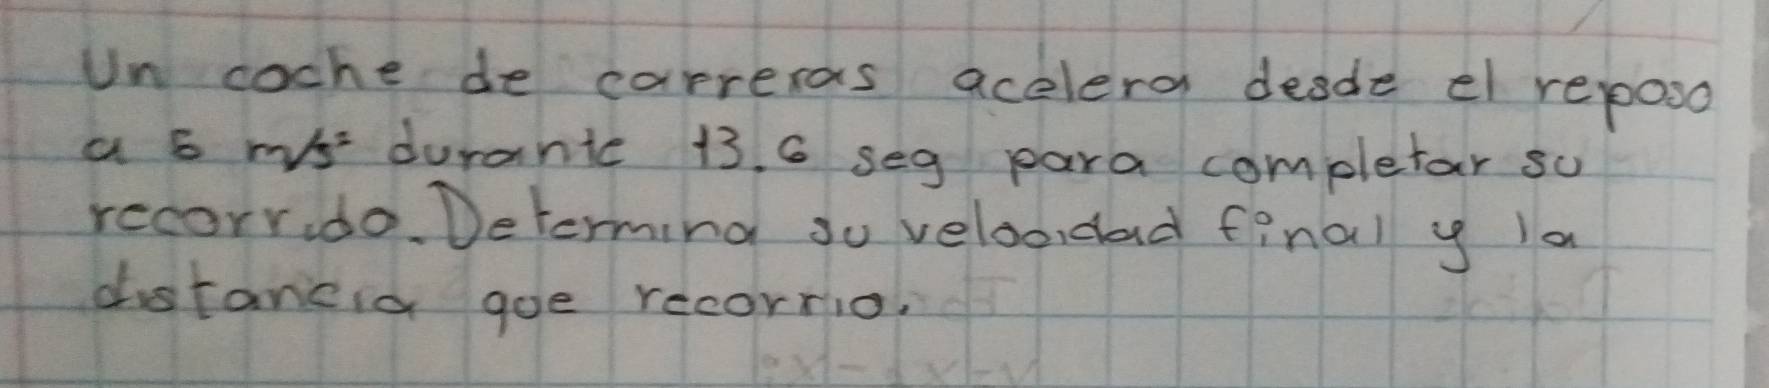 Un coche de carreras acelera desde el reposo
a 5 m/s² durante 13.6 seg para completar su
recorrido. Determina su velocidad final y la
distancia que recorrio.